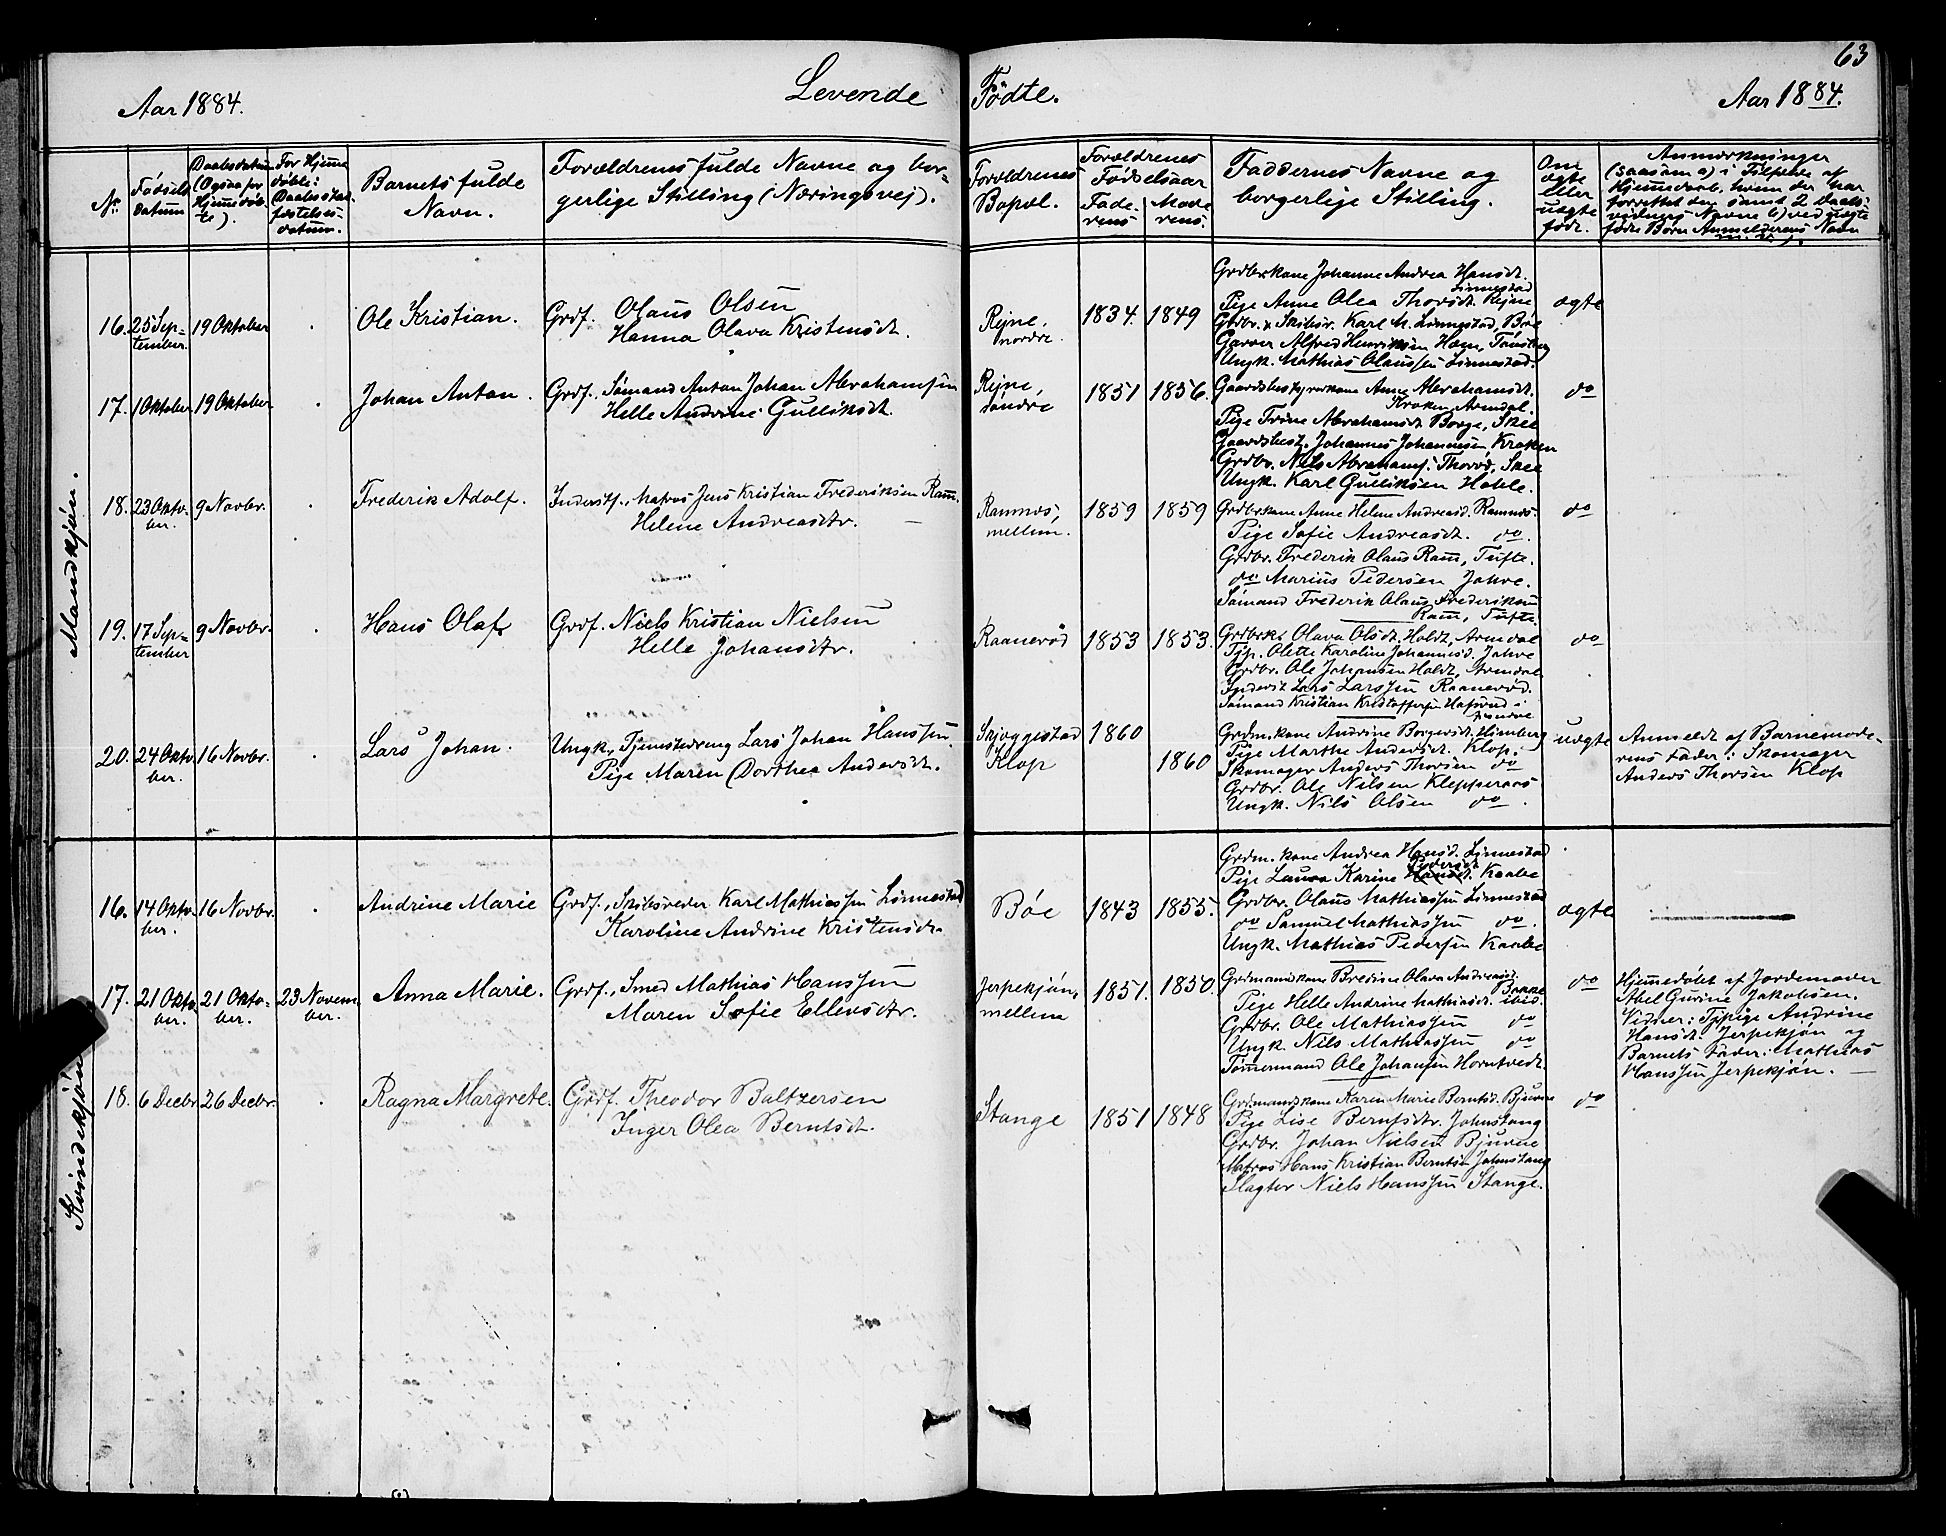 63
Aar 1884.
Levende Födte.
Aar 1884.
No
Födsels datum
Daabsdatum (Ogsaa for Hjemmedöbte).
For Hjemmedöbte: Daabsstadfæstelsesdatum.
Barnets fulde Navn.
Forældrenes fulde Navne og borgerlige Stilling (Næringsvej).
Forældrenes Bopæl.
Forældrenes Födselsaar
Faderens
Moderens.
Faddernes Navne og borgerlige Stilling.
Om ægte eller uægte födt.
Anmærkninger
(saasom a) i Tilfælde af
Hjemmedaab, hvem der har
forrettet den samt 2 Daabs-
vidners Navne b) ved uægte
födte Börn Anmelderens Navn
m. v.).
Mandkjön.
16. 25 Sep-
tember.
19 Oktober
Ole Kristian.
Grdf. Olaus Olsen
Hanna Olava Kristensdt.
Rejne,
nordre.
1834. 1849
Grdbrkone Johanne Andrea Hansdt.
Linnestad
Pige Anne Olea Thorsdt. Rejne
Grdbr. & Skibsr. Karl M. Linnestad, Böe
Garver Alfred Henriksen Hem, Tönsberg
Ungk. Mathias Olaussen Linnestad.
ægte
17. 1 Oktober 19 Oktober
Johan Anton.
Grdf., Sömand Anton Johan Abrahamsen
Helle Andrine Gulliksdt.
Rejne,
söndre
1851 1856.
Gaardsbestyrerkone Anne Abrahamsdt.
Kroken Arendal.
Pige Trine Abrahamsdt. Borge, Skee
Gaardsbest. Johannes Johannesen, Kroken
Grdbr. Nils Abrahams. Thorød, Skee
Ungk. Karl Gulliksen Hohle.
do
18. 23 Okto-
ber.
9 Novbr.
Frederik Adolf.
Inderstf., Matros Jens Kristian Frederiksen Ram.
Helene Andreasdtr.
Ramnæs,
mellem.
1859 1859
Grdbrkone Anne Helene Andreasd. Ramnæs.
Pige Sofie Andreasdt. do.
Grdbr. Frederik Olaus Ram, Tufte.
do Marius Pedersen Jahre.
Sömand Frederik Olaus Frederiksen
Ram, Tufte.
do
19. 17 Sep-
tember
9 Novbr.
Hans Olaf.
Grdf. Niels Kristian Nielsen
Helle Johansdtr.
Raanerød
1853 1853.
Grdbrk. Olava Olsdt. Holdt, Arendal
Tjp. Olette Karoline Johannesd. Jahre
Grdbr. Ole Johansen Holdt, Arendal
Inderst Lars Larssen Raanerød.
Sömand Kristian Kristoffersen Hafsund i
do
20. 24 Okto-
ber.
16 Novbr.
Lars Johan.
Ungk., Tjenestedreng Lars Johan Hanssen.
Pige Maren Dorthea Andersdt.
Skjeggestad
Klop
1860
1860
Grdm.kone Andrine Borgersdt. Himberg
Pige Marthe Andersdt. Klop.
Skomager Anders Thorsen do
Grdbr. Ole Nilsen Kleppernæs
Ungk. Nils Olsen do.
uægte
Anmeldt af Barnemode-
rens Fader: Skomager
Anders Thorsen Klop
Kvindekjön
16. 14 Okto-
ber.
16 Novbr.
Andrine Marie
Grdf., Skibsreder Karl Mathiassen Linnestad
Karoline Andrine Kristensdtr.
Böe
1843 1855.
Grdm. kone Andrea Hansd. Linnestad
Pedersdt.
Pige Laura Karine Hansdt. Kaabe
Grdbr. Olaus Mathiassen Linnestad
do Samuel Mathiassen do.
Ungk. Mathias Pedersen Kaabe
ægte
17. 21 Okto-
ber.
21 Okto-
ber.
23 Novem-
ber.
Anna Marie.
Grdf., Smed Mathias Hanssen
Maren Sofie Ellevsdtr.
Jerpekjön,
mellem
1851. 1850.
Grdmandskone Bredine Olava Andreasdt.
Bakke
Pige Helle Andrine Mathiasdt. ibid.
Grdbr. Ole Mathiassen do
Ungk. Nils Mathiassen do
Tömermand Ole Johansen Horntvedt.
do
Hjemmedöbt af Jordemoder
Abel Gurine Jakobsen.
Vidner: Tjpige Andrine
Hansdt. Jerpekjön og
Barnets Fader: Mathias
Hanssen Jerpekjön.
18. 6 Decbr. 26 Decbr.
Ragna Margrete.
Grdf. Theodor Baltzersen
Inger Olea Berntsdt.
Stange
1851 1848
Grdmandskone Karen Marie Berntsdt. Bjurne
Pige Lise Berntsdtr. Johnstang
Grdbr. Johan Nielsen Bjurne
Matros Hans Kristian Berntsen Johnstang
Slagter Niels Hanssen Stange.
do